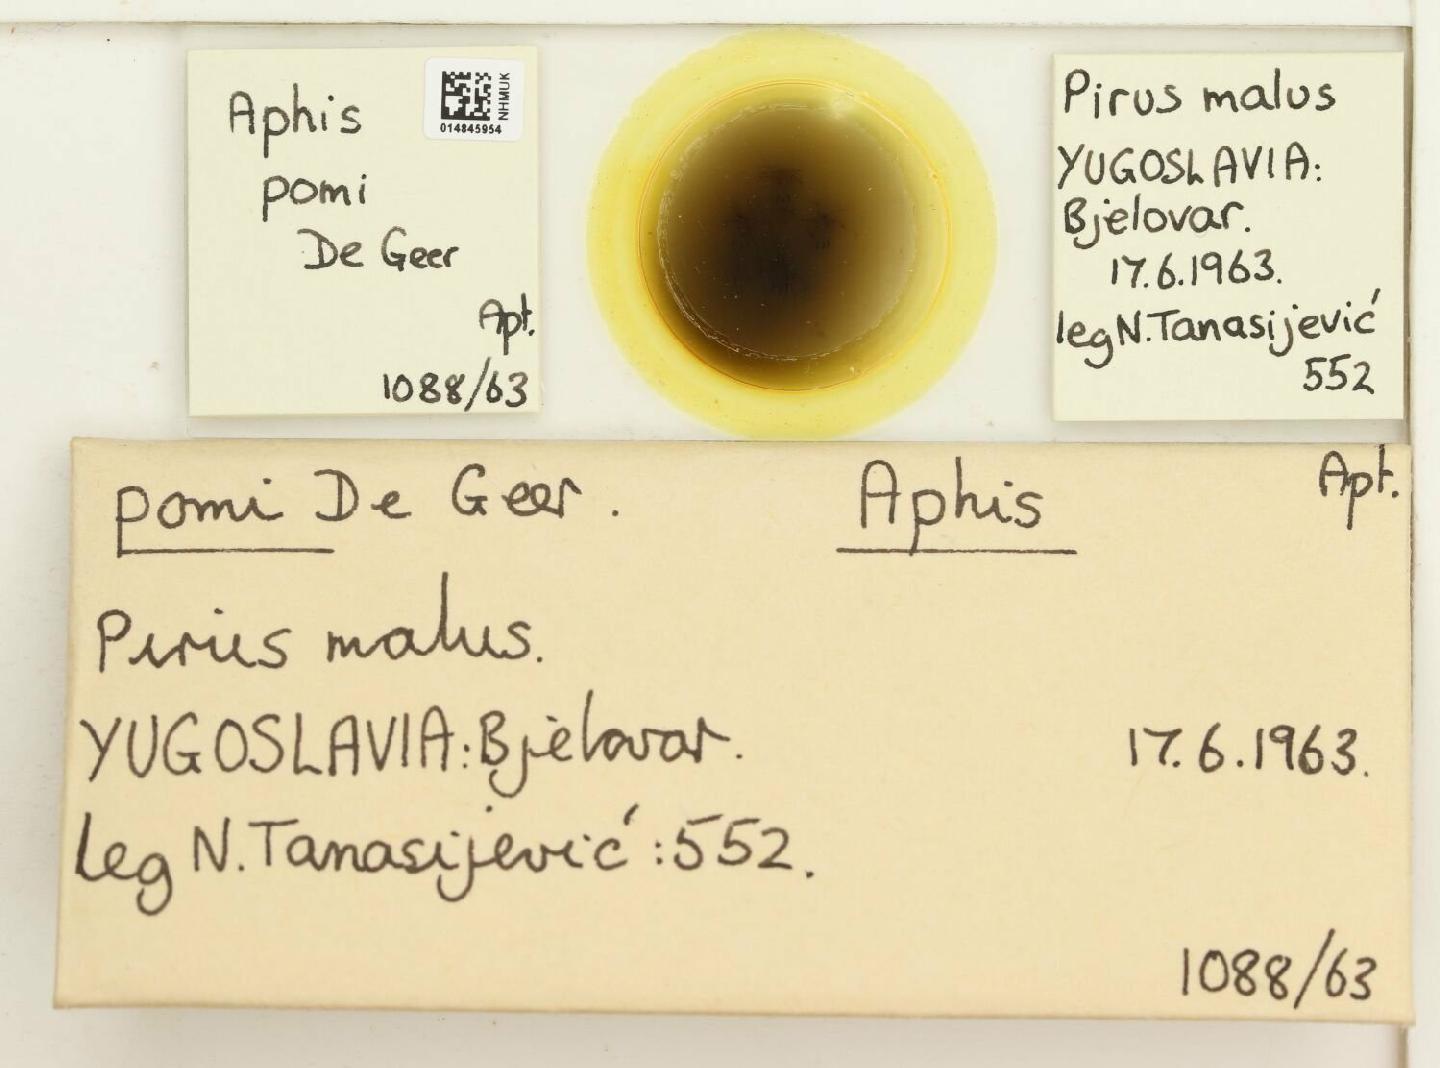 Aphis
pomi
De Geer
Apt.
1088/63
NHMUK
014845954
Pirus malus
YUGOSLAVIA:
Bjelovar.
17.6.1963.
leg N. Tanasijević
552
pomi De Geer. Aphis Apt.
Pirus malus.
YUGOSLAVIA: Bjelovar. 17.6.1963.
leg N. Tanasijević: 552.
1088/63